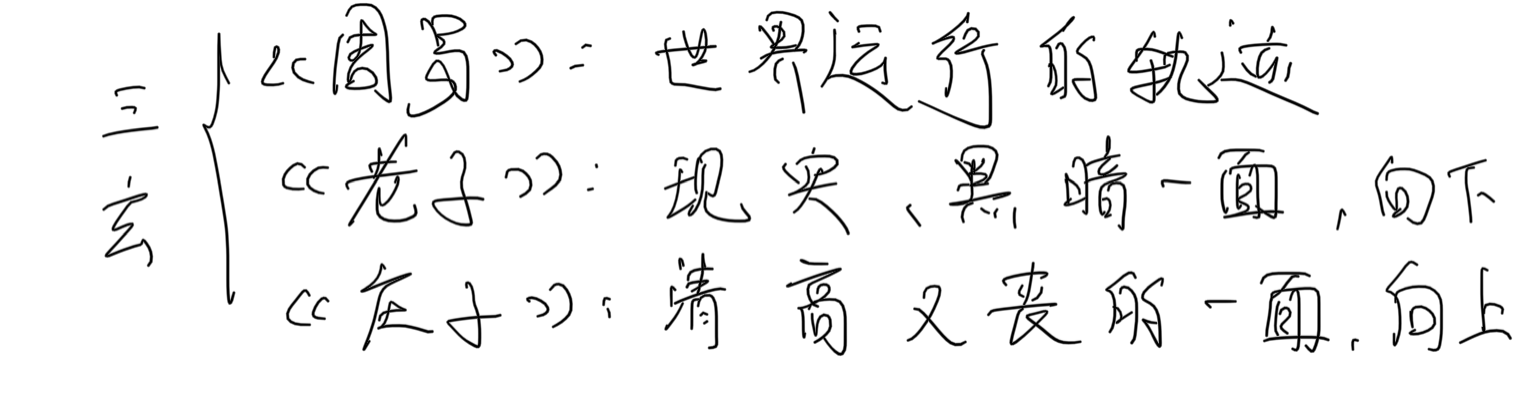 三玄
《周易》：世界运行的轨迹
《老子》：现实、黑暗一面，向下
《庄子》：清高又丧的一面，向上